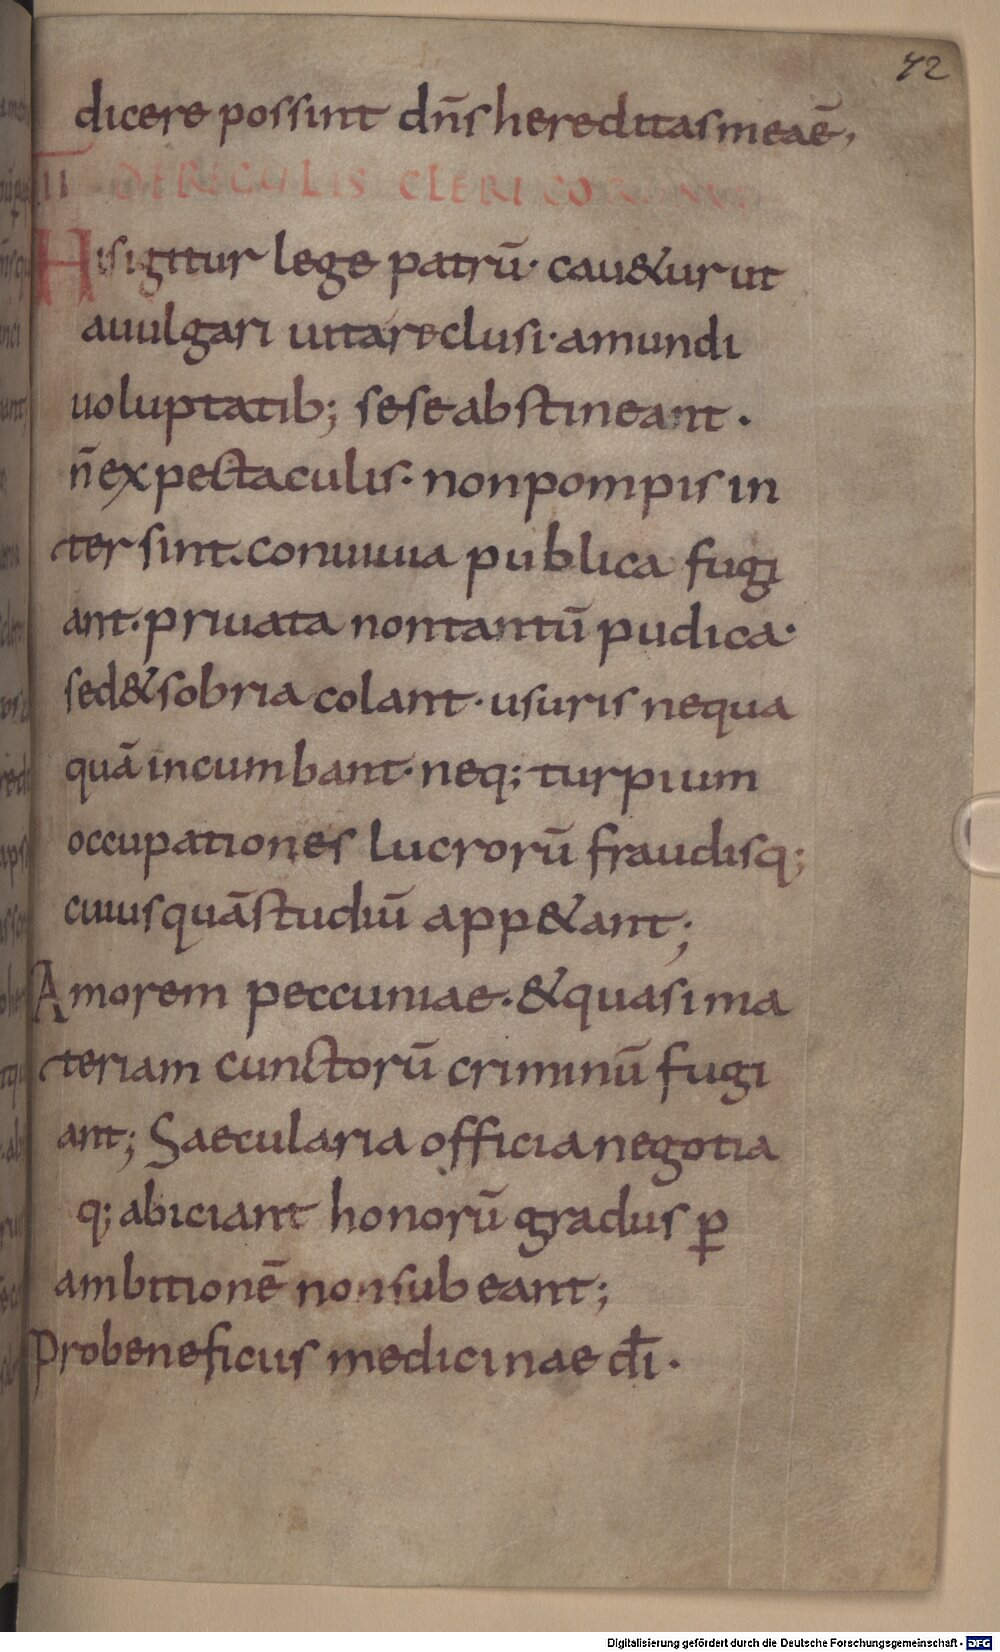 72
dicere possint dn̄s hereditas mea ē,
II DE REGULIS CLERICORUM
His igitur lege patrū· cau&ur ut
a uulgari uita reclusi· a mundi
uoluptatib; sese abstineant·
n̄ expectaculis· non pompis in
tersint. conuiuia publica fugi
ant· priuata non tantū pudica·
sed & sobria colant· usuris nequa
quā incumbant· neq; turpium
occupationes lucrorū fraudisq;
cuiusquā studiū app&ant;
Amorem peccuniae· & quasi ma
teriam cunctorū criminū fugi
ant; Saecularia officia negotia
q; abiciant honorū gradus ꝑ
ambitionē non subeant;
Pro beneficiis medicinae dī·
Digitalisierung gefördert durch die Deutsche Forschungsgemeinschaft - DFG